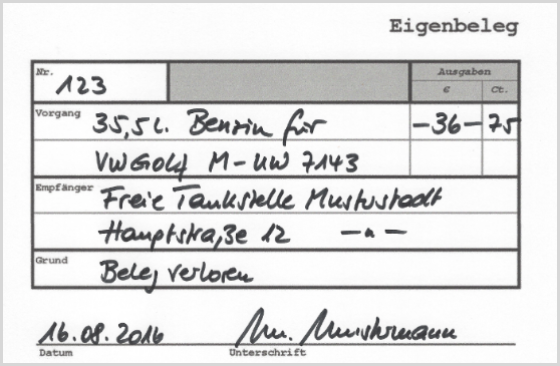 Eigenbeleg
Nr. 123
Ausgaben
€ Ct.
Vorgang 35,5 l. Benzin für -36-75
VW Golf M-UW 7143
Empfänger Freie Tankstelle Musterstadt
Hauptstraße 12 -"-
Grund Beleg verloren
16.08.2016 M. Mustermann
Datum Unterschrift